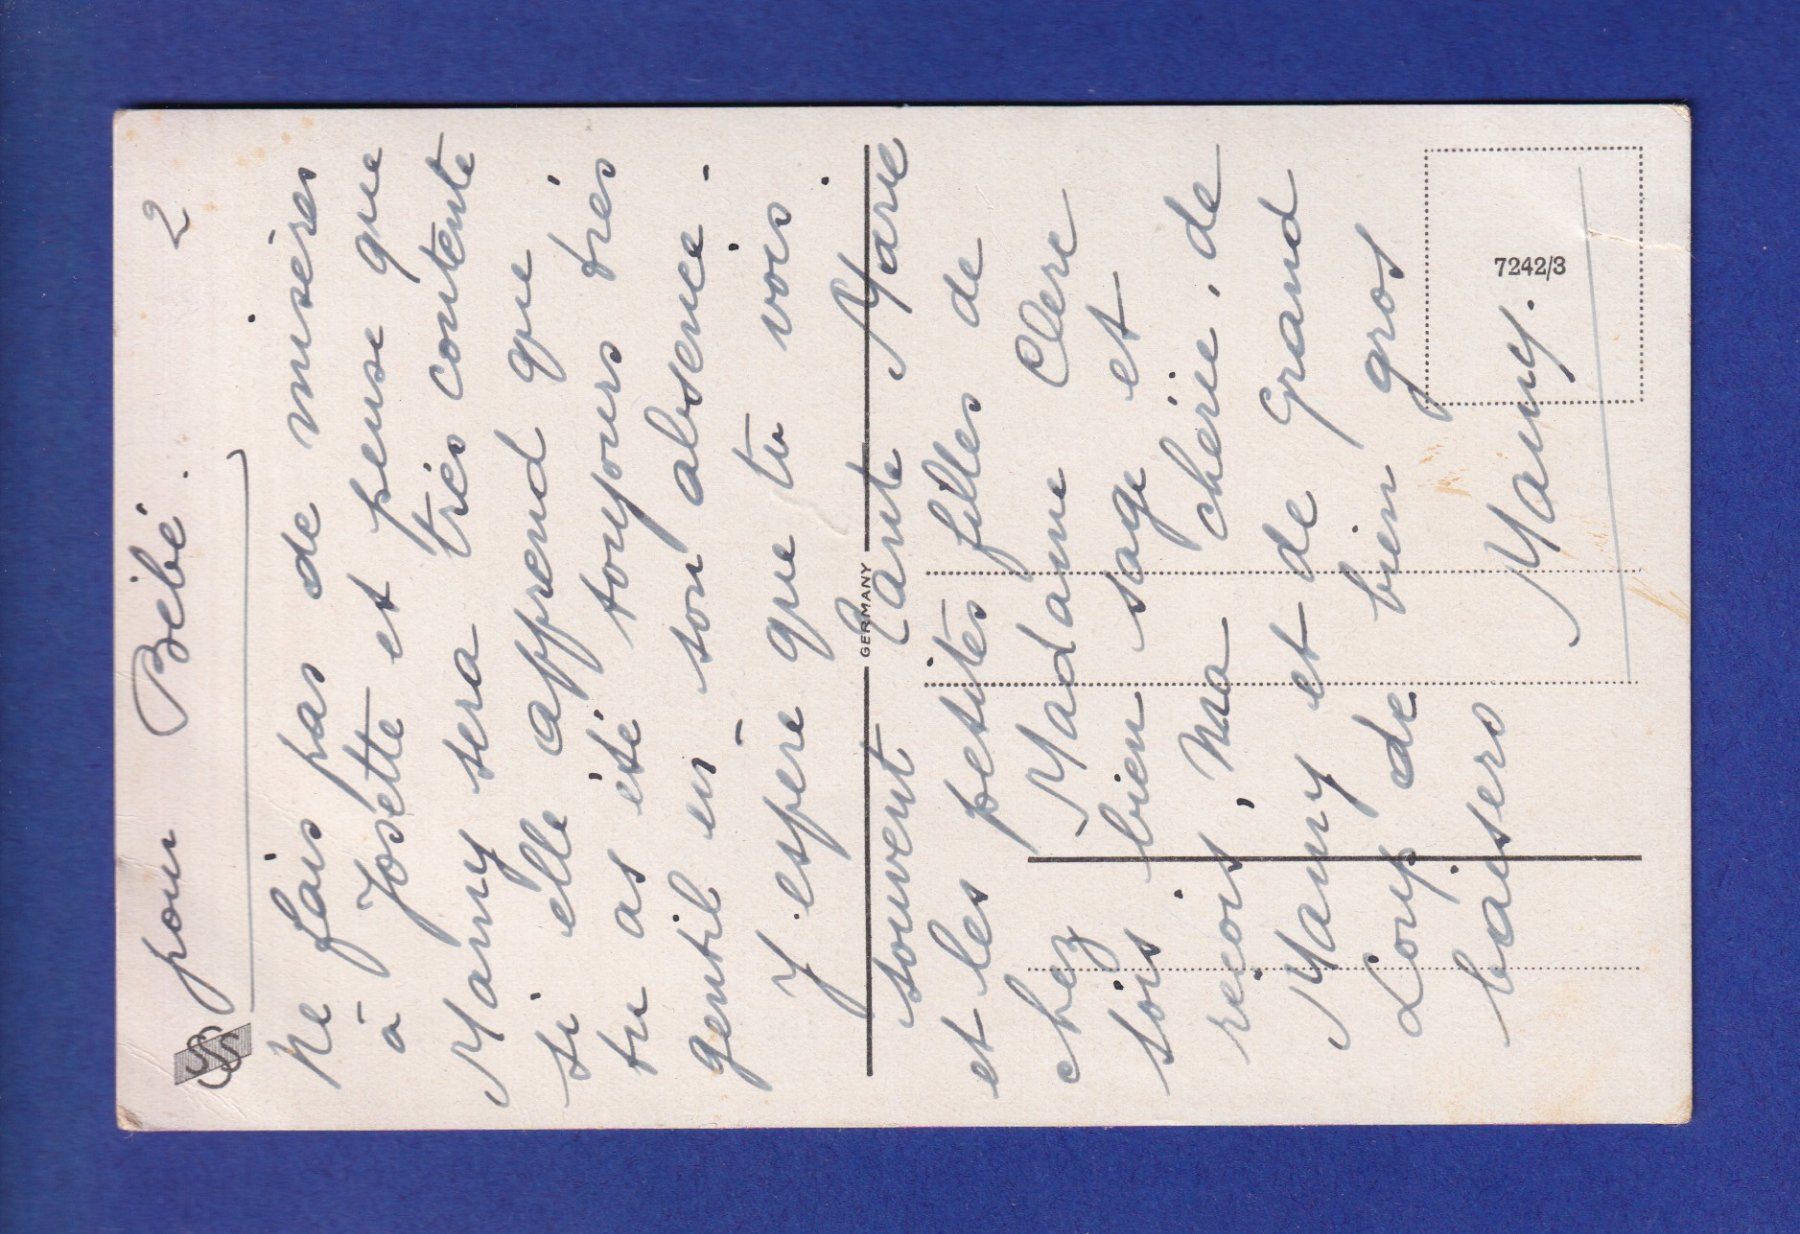 2
pour Bébé.
Ne fais pas de misères
à Josette et pense que
Mamy sera très contente
si elle apprend que
tu as été toujours très
gentil en son absence.
J'espère que tu vois
souvent Tante Marie
et les petites filles de
chez Madame Clerc
sois bien sage et
reçois, ma chérie, de
Mamy et de Grand
Loup de bien gros
baisers Mamy.
GERMANY
7242/3